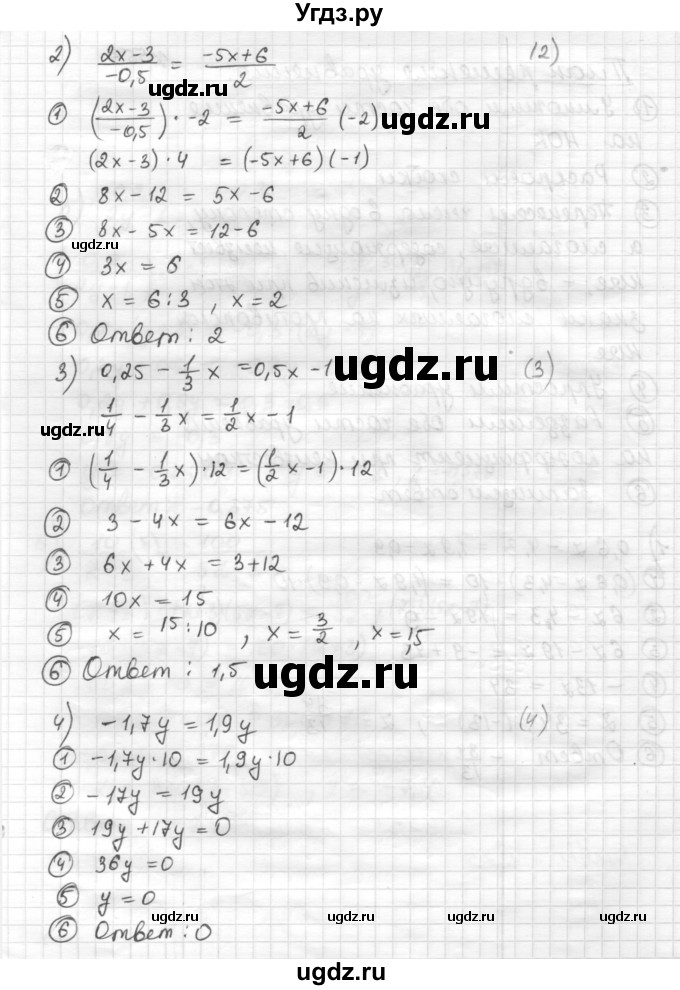 Угдз.ру
2) (2x-3)/(-0,5) = (-5x+6)/2 (2)
ugdz.ru
① ((2x-3)/(-0,5)) · -2 = (-5x+6)/2 (-2)
ugdz.ru
(2x-3)·4 = (-5x+6)(-1)
② 8x-12 = 5x-6
③ 8x-5x = 12-6
ugdz.ru
④ 3x = 6
ugdz.ru
⑤ x = 6:3 , x = 2
⑥ Ответ: 2
3) 0,25 - 1/3 x = 0,5x - 1 (3)
ugdz.ru
1/4 - 1/3 x = 1/2 x - 1
ugdz.ru
① (1/4 - 1/3 x)·12 = (1/2 x - 1)·12
② 3 - 4x = 6x - 12
③ 6x + 4x = 3+12
④ 10x = 15
⑤ x = 15:10 , x = 3/2 , x = 1,5
ugdz.ru
⑥ Ответ: 1,5
ugdz.ru
4) -1,7y = 1,9y (4)
① -1,7y·10 = 1,9y·10
② -17y = 19y
③ 19y + 17y = 0
④ 36y = 0
⑤ y = 0
ugdz.ru
ugdz.ru
⑥ Ответ: 0
ugdz.ru